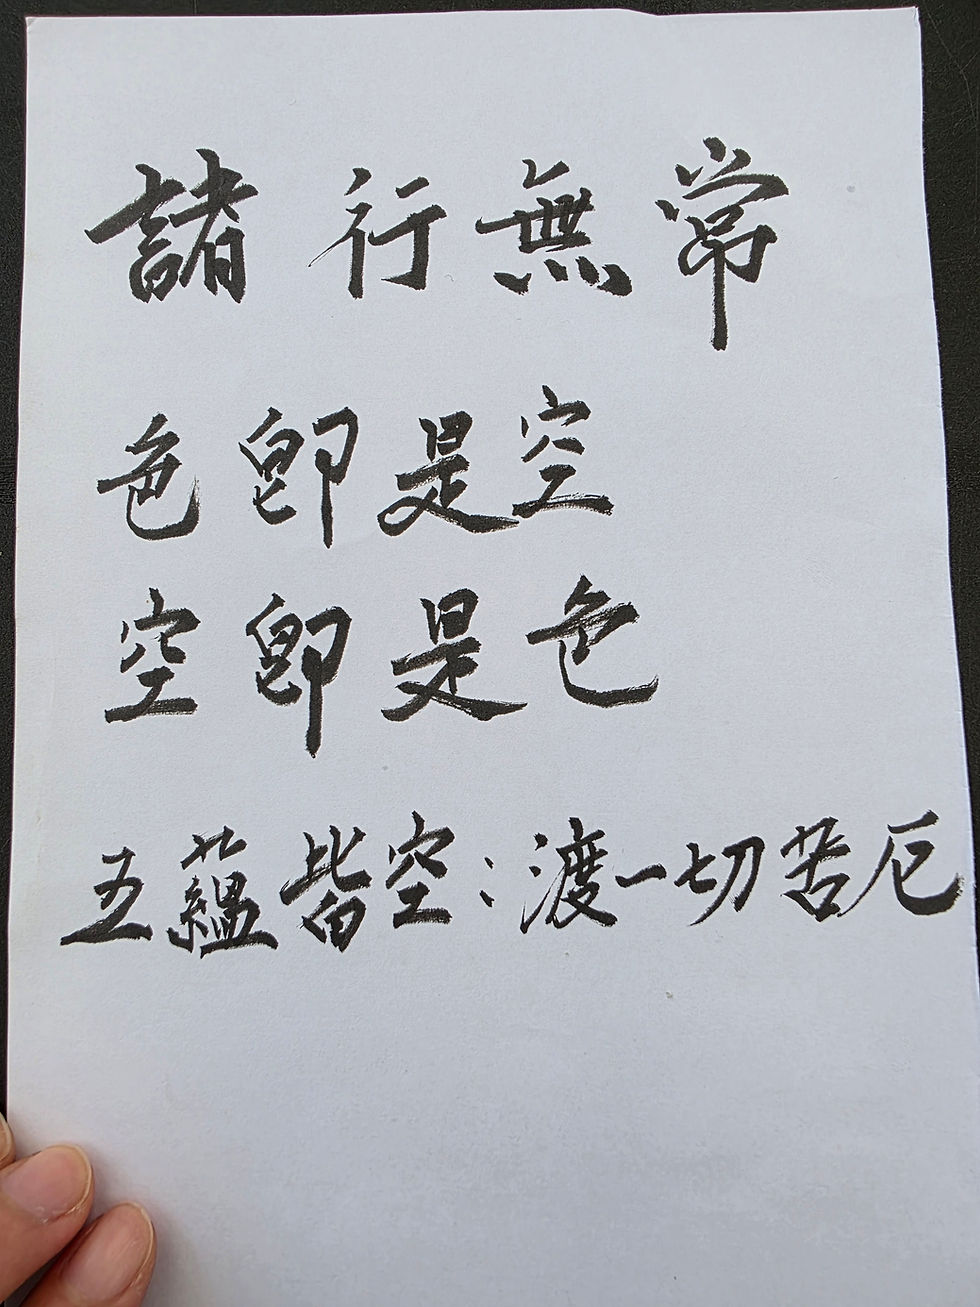 諸行無常
色即是空
空即是色
五蘊皆空：渡一切苦厄